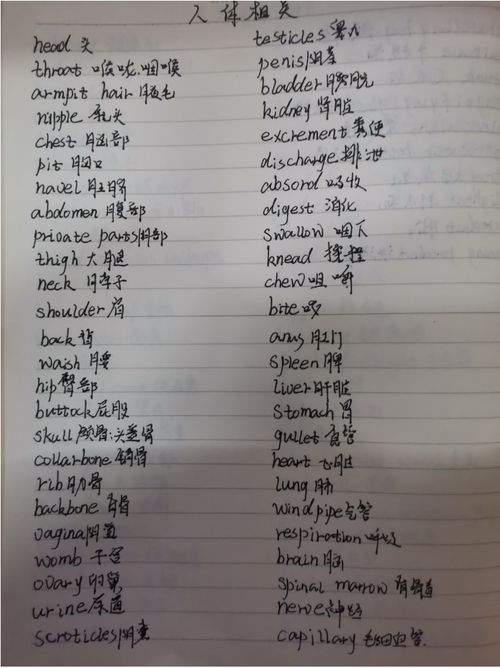 人体相关
head 头
throat 喉咙.咽喉
armpit hair 腋毛
nipple 乳头
chest 胸部
pit 胸口
navel 肚脐
abdomen 腹部
private parts 阴部
thigh 大腿
neck 脖子
shoulder 肩
back 背
waish 腰
hip 臀部
buttock 屁股
skull 颅骨.头盖骨
collarbone 锁骨
rib 肋骨
backbone 脊骨
vagina 阴道
womb 子宫
ovary 卵巢
urine 尿道
scroticles 阴囊
testicles 睾丸
penis 阴茎
bladder 膀胱
kidney 肾脏
excrement 粪便
discharge 排泄
absord 吸收
digest 消化
swallow 咽下
knead 揉捏
chew 咀嚼
bite 咬
anus 肛门
spleen 脾
liver 肝脏
stomach 胃
gullet 食管
heart 心脏
lung 肺
windpipe 气管
respiration 呼吸
brain 脑
spinal marrow 脊骨道
nerve 神经
capillary 毛细血管